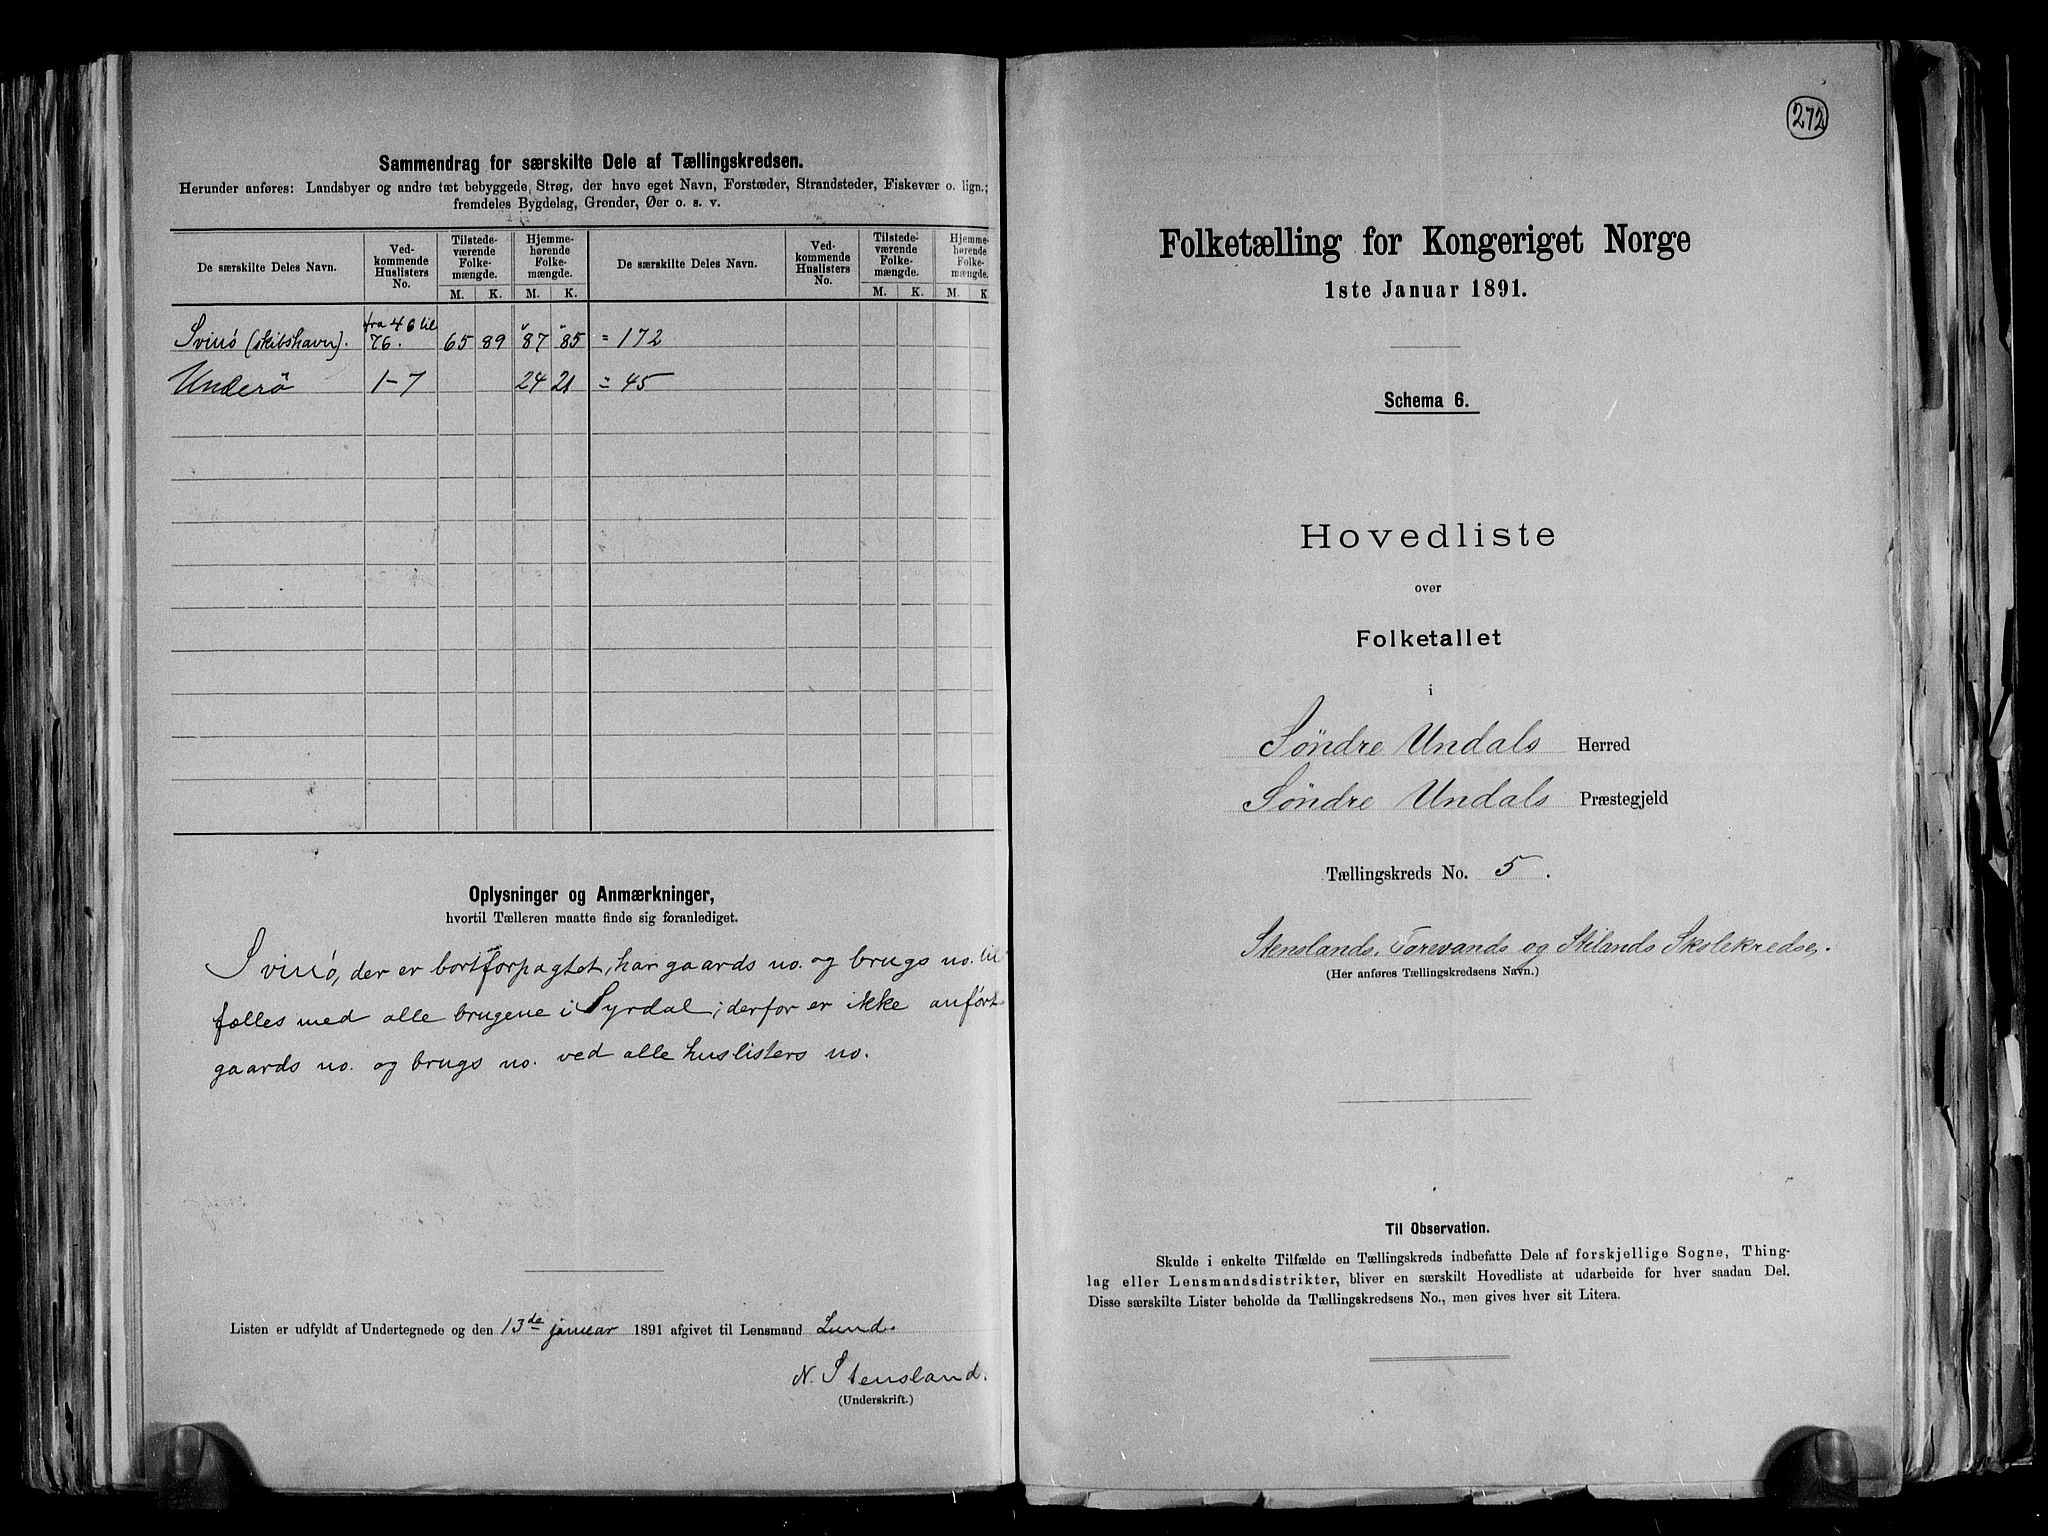 Sammendrag for særskilte Dele af Tællingskredsen.
Herunder anføres: Landsbyer og andre tæt bebyggede Strøg, der have eget Navn, Forstæder, Strandsteder, Fiskevær o. lign.;
fremdeles Bygdelag, Grender, Øer o. s. v.
De særskilte Deles Navn. Vedkommende Huslisters No. Tilstedeværende Folkemængde. Hjemmehørende Folkemængde. De særskilte Deles Navn. Vedkommende Huslisters No. Tilstedeværende Folkemængde. Hjemmehørende Folkemængde.
M. K. M. K. M. K. M. K
Svinø (skibshavn). fra 46 til 76. 65 89 87 85 = 172
Underö 1-7 24 21 = 45
Oplysninger og Anmærkninger,
hvortil Tælleren maatte finde sig foranlediget.
Svinø, der er bortforpagtet, har gaards no. og brugs no. til
fælles med alle brugene i Syrdal; derfor er ikke anført
gaards no. og brugs no. ved alle huslisters no.
Listen er udfyldt af Undertegnede og den 13de januar 1891 afgivet til Lensmand Lund.
N. Stensland.
(Underskrift.)
272
Folketælling for Kongeriget Norge
1ste Januar 1891.
Schema 6.
Hovedliste
over
Folketallet
i
Søndre Undals Herred
Søndre Undals Præstegjeld
Tællingskreds No. 5.
Stenslands, Tarevands og Stilands Skolekredse.
(Her anføres Tællingskredsens Navn.)
Til Observation.
Skulde i enkelte Tilfælde en Tællingskreds indbefatte Dele af forskjellige Sogne, Thing-
lag eller Lensmandsdistrikter, bliver en særskilt Hovedliste at udarbeide for hver saadan Del.
Disse særskilte Lister beholde da Tællingskredsens No., men gives hver sit Litera.